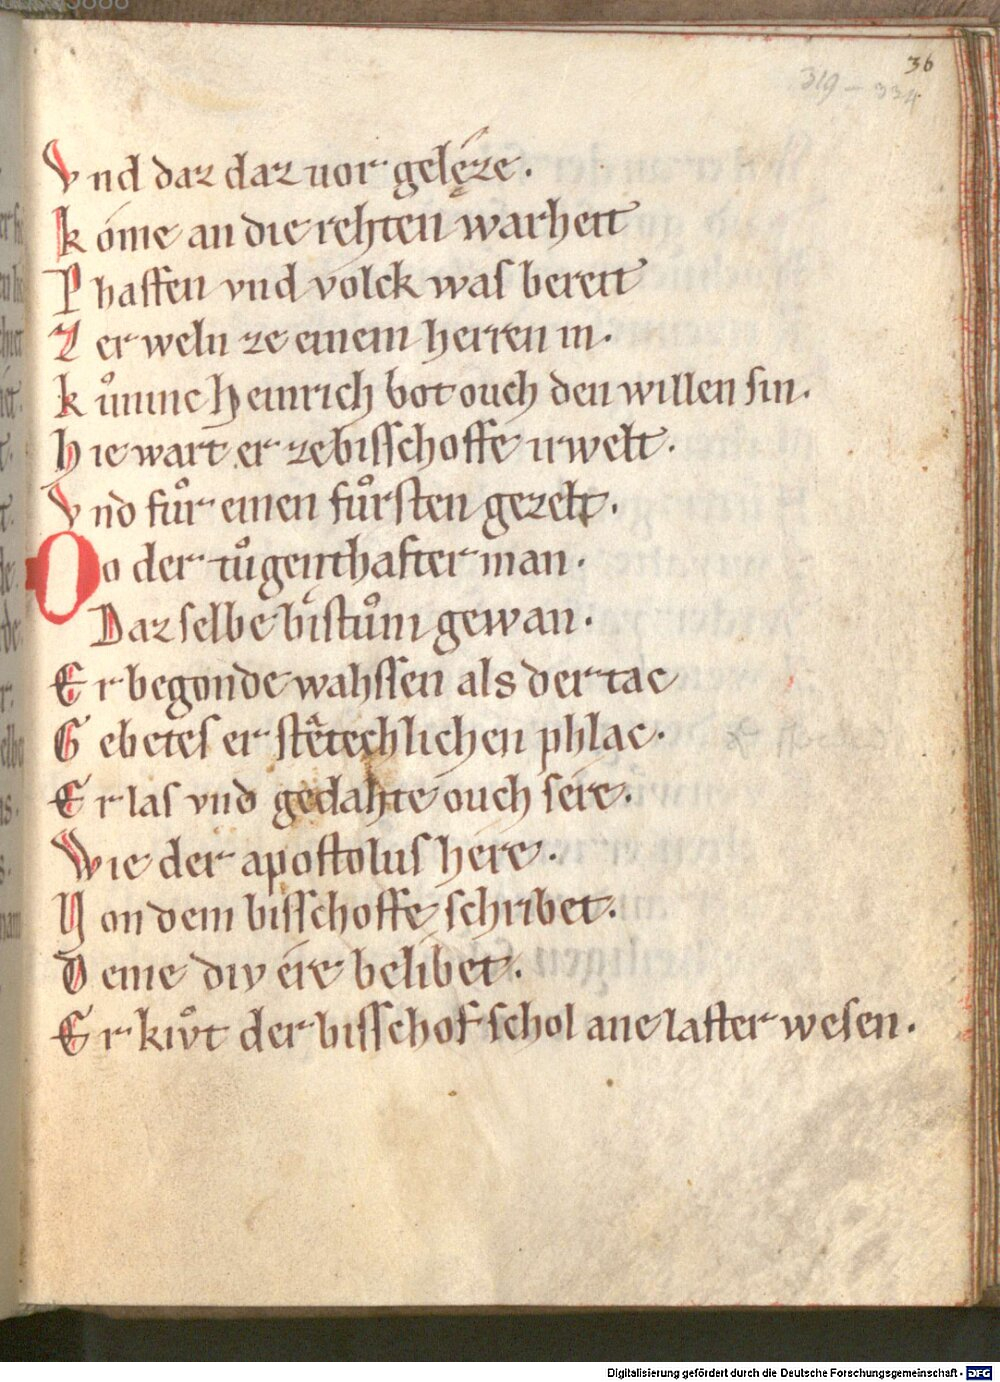 36
319 – 334
Vnd daz daz uor gelęze.
kome an die rehten warheit
Phaffen vnd volck waſ bereit
Zer weln ze einem herren in.
kůninc Heinrich bot ouch den willen ſin.
hie wart er ze biſſchoffe irwelt.
Vnd fůr einen fůrſten gezelt.
Do der tůgenthafter man.
Daz ſelbe biſtům gewan.
Er begonde wahſſen als der tac
Gebeteſ er ſtêtechlichen phlac.
Er las vnd gedahte ouch ſere.
Wie der apoſtoluſ here.
Von dem biſſchoffe ſchribet.
Deme div ere belibet.
Er kůt der biſſchof ſchol ane laſter weſen.
Digitalisierung gefördert durch die Deutsche Forschungsgemeinschaft - DFG